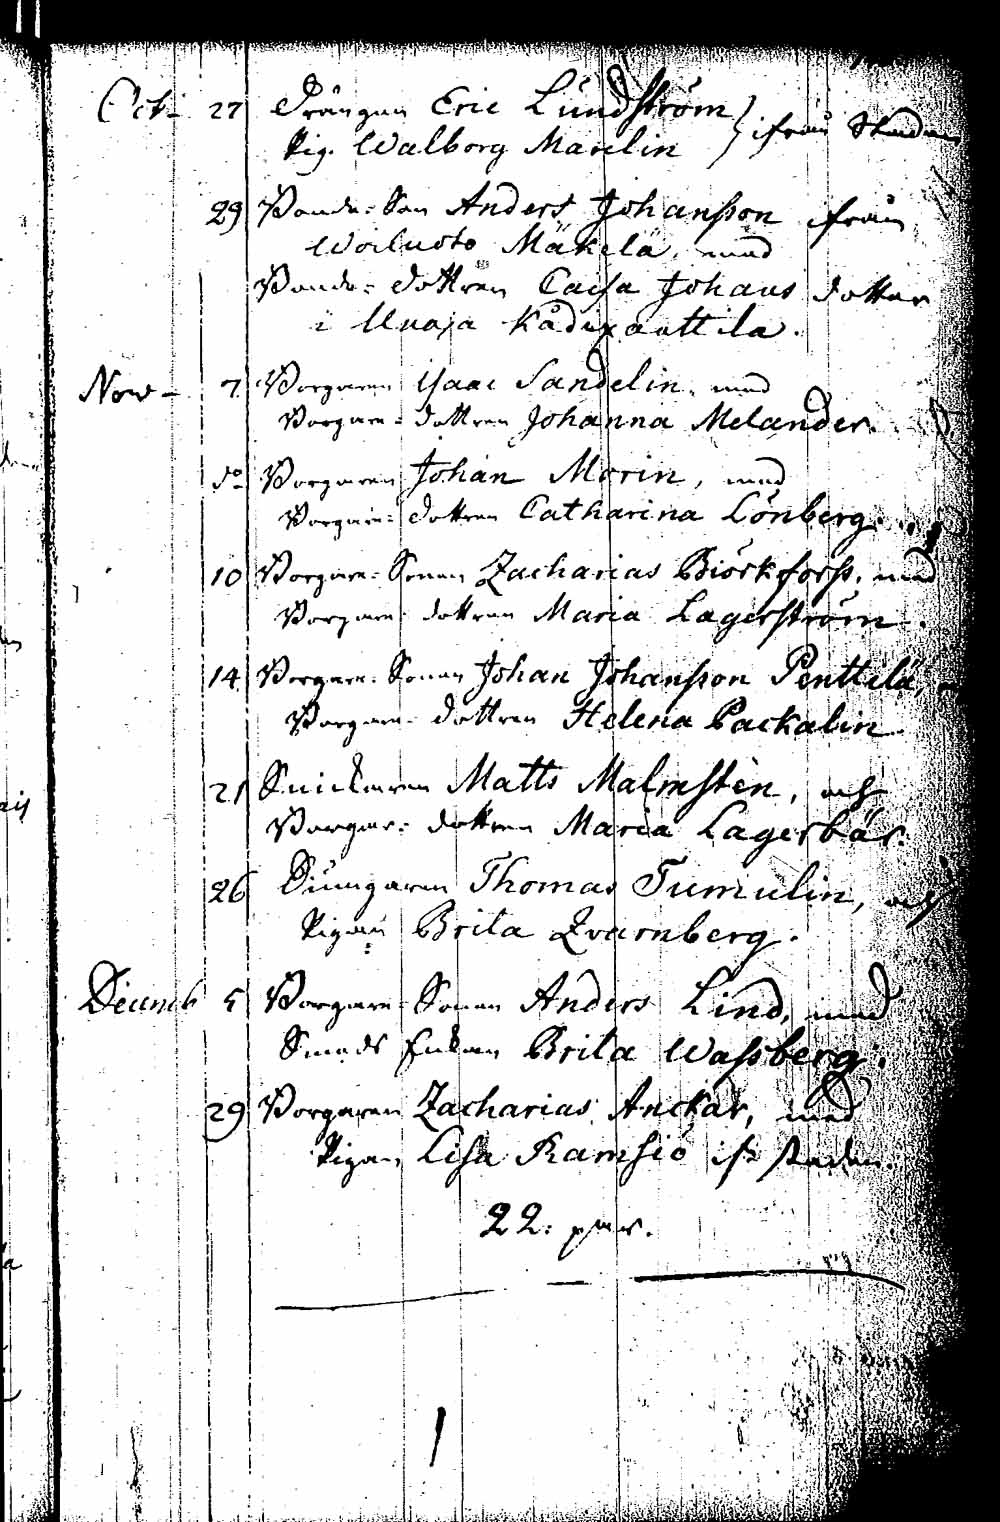 Oct:- 27 Drängen Eric Lundström
Pig. Walborg Marilin } ifrån Staden
29 Bonde-Son Anders Johansson ifrån
Woiluoto Mäkelä, med
Bonde-dottren Caisa Johans dotter
i Unaja
Nov- 7 Borgaren Isaac Sandelin, med
Borgare-dottren Johanna Melander.
do Borgaren Johan Morin, med
Borgare-dottren Catharina Lönberg.
10 Borgare-Sonen Zacharias Biörkforss, med
Borgare-dottren Maria Lagerström.
14 Borgare-Sonen Johan Johansson Penttilä,
Borgare-dottren Helena Packalin
21 Snickaren Matts Malmstén, och
Borgar-dottren Maria Lagerbär.
26 Thomas Tumulin, och
Pigan Brita Qvarnberg.
Decemb 5 Borgare-Sonen Anders Lind, med
Smeds Enkan Brita Wassberg.
29 Borgaren Zacharias Anckar, med
Pigan Lisa Ramsiö ifr Staden.
22: par.